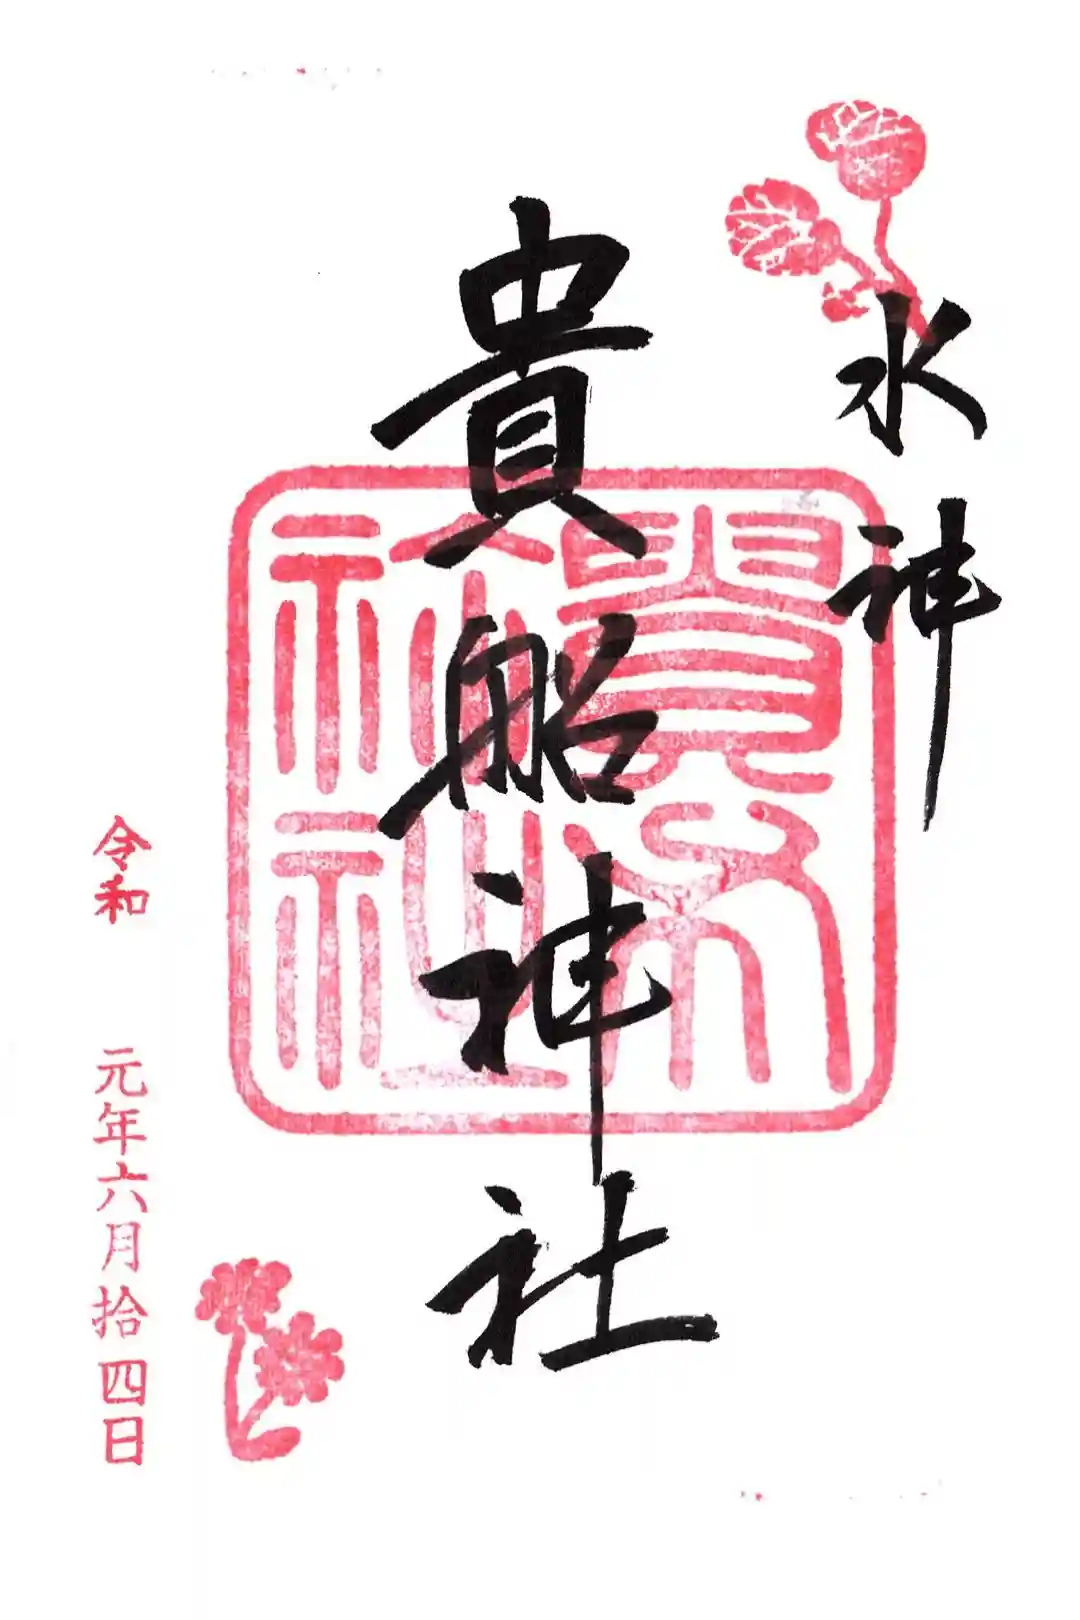 水神
貴船神社
貴布祢社
令和 元年六月拾四日